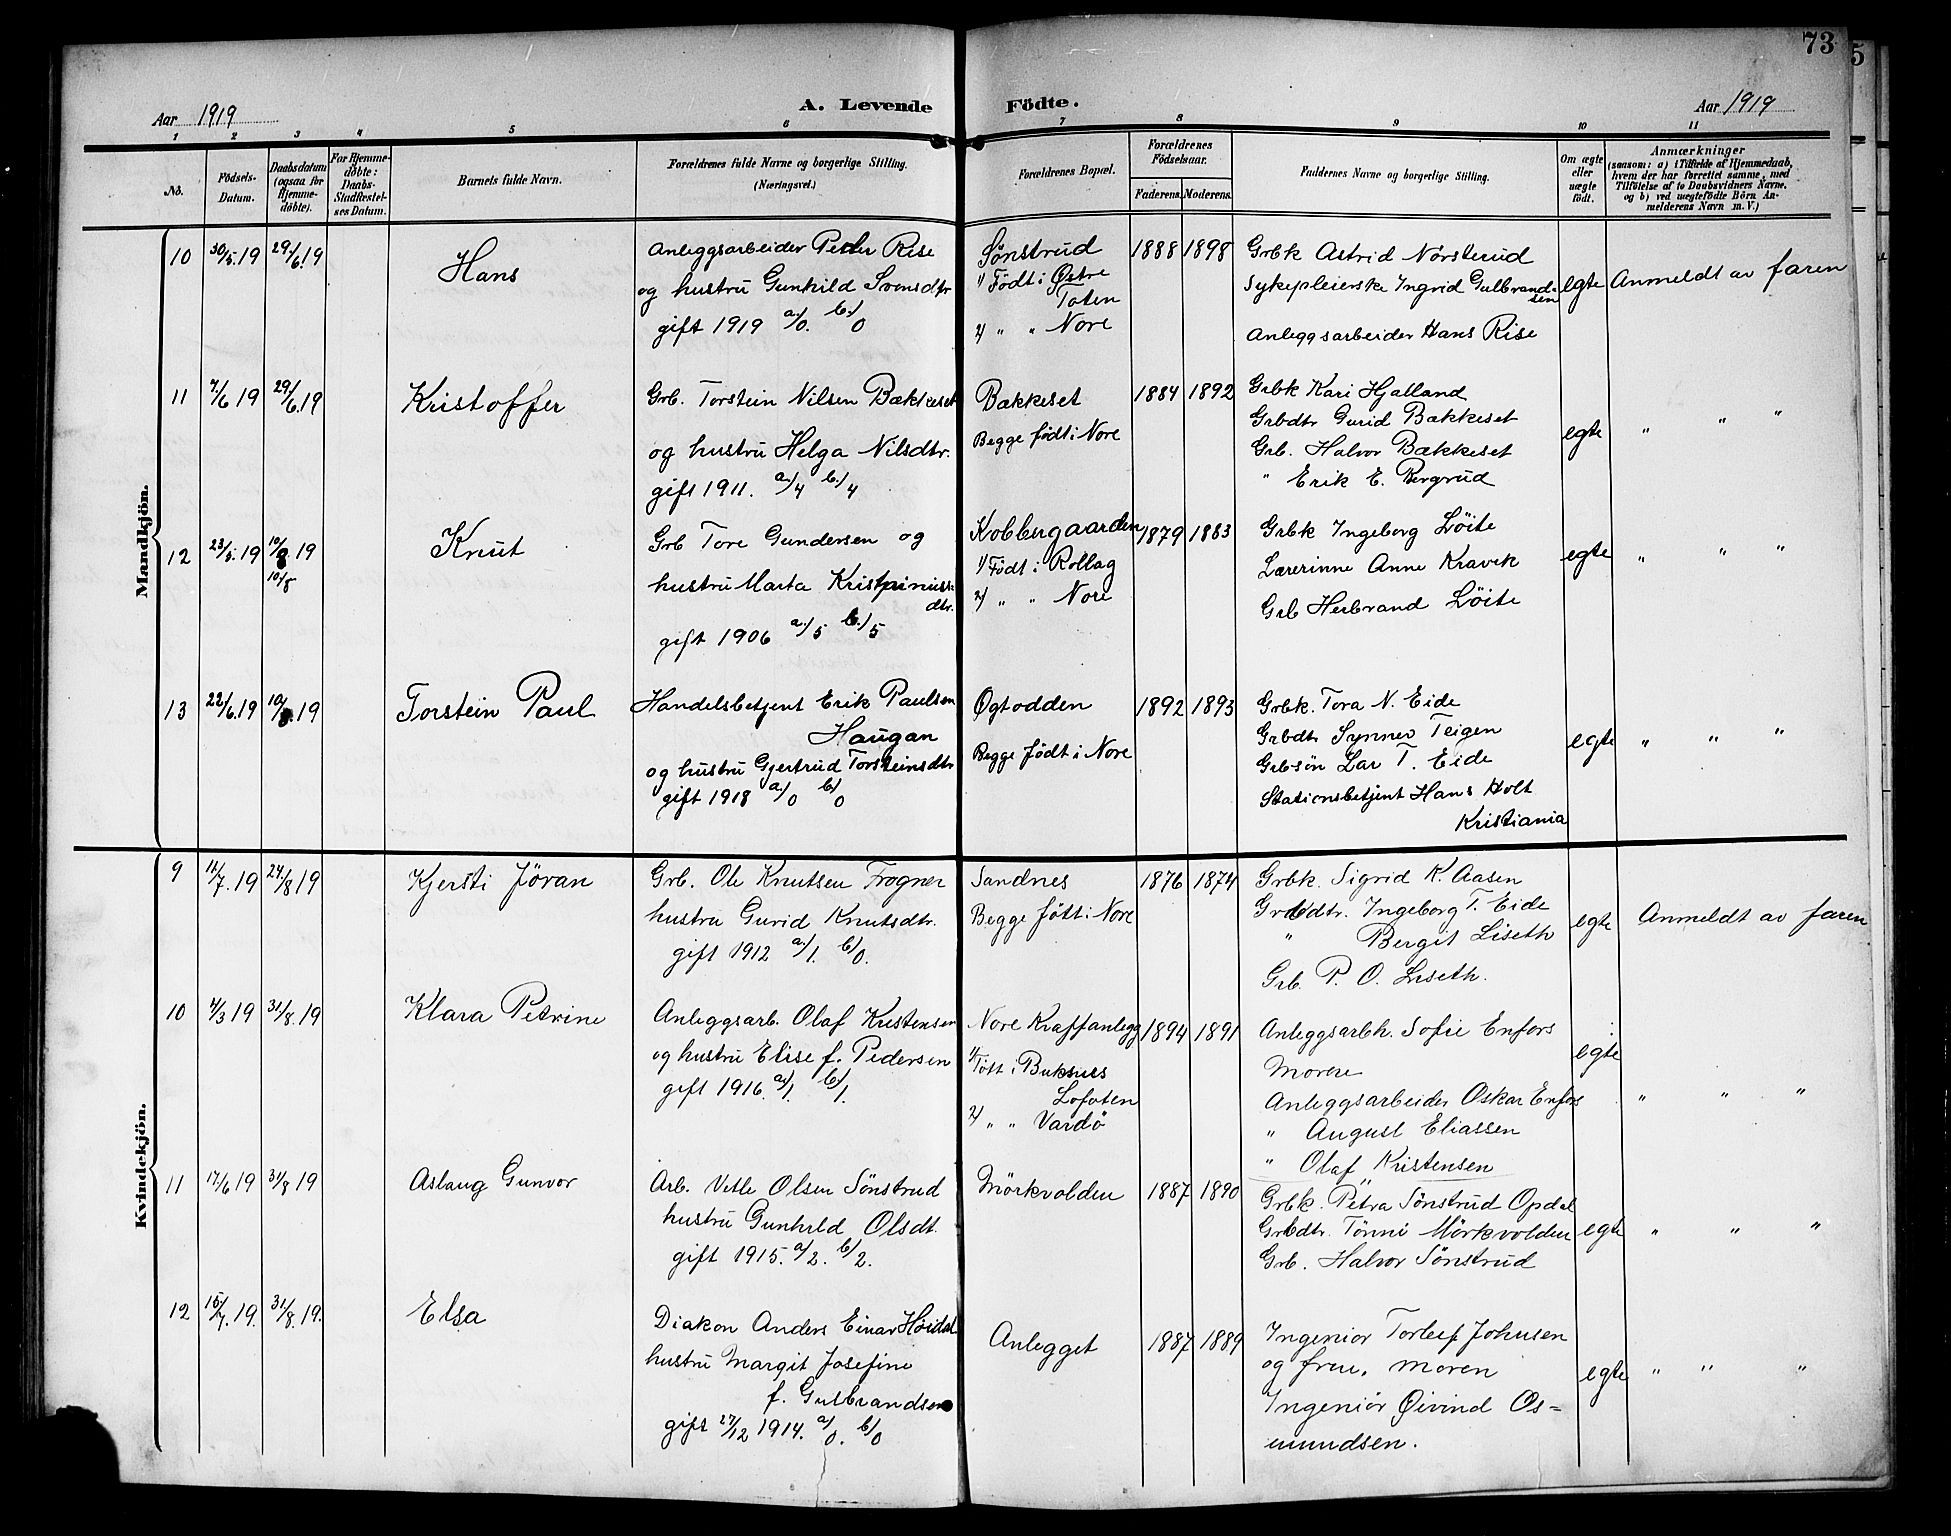 73
5
Aar 1919
A. Levende Födte.
Aar 1919
1 2 3 4 5 6 7 8 9 10 11
No.
Födsels-
Datum.
Daabsdatum
(ogsaa for
Hjemme-
döbte).
For Hjemme-
döbte:
Daabs-
Stadfæstel-
ses Datum.
Barnets fulde Navn.
Forældrenes fulde Navne og borgerlige Stilling.
(Næringsvei.)
Forældrenes Bopæl.
Forældrenes
Födselsaar.
Faderens. Moderens.
Faddernes Navne og borgerlige Stilling.
Om ægte
eller
uægte
født.
Anmærkninger
(saasom: a) i Tilfælde af Hjemmedaab,
hvem der har forrettet samme, med
Tilföielse af to Daabsvidners Navne.
og b) ved uægtefödte Börn An-
melderens Navn m. V.)
Mandkjön.
10 30/5.19 29/6.19
Hans
Anleggsarbeider Peder Rise
og hustru Gunhild Svensdtr
gift 1919 a/0. b/0
Sønstrud
1/ Født i Østre
Toten
2/ " " Nore
1888 1898
Grbk Astrid Nørsterud
Sykepleierske Ingrid Gulbrand-
sen
Anleggsarbeider Hans Rise
egte
Anmeldt av faren
11 7/6 19 29/6.19
Kristoffer
Grb. Torstein Nilsen Bækkeset
og hustru Helga Nilsdtr.
gift 1911. a/4 b/4
Bækkeset
Begge født i Nore
1884 1892
Grbk Kari Hjalland
Grbdtr Gurid Bækkeset
Grb. Halvor Bækkeset
" Erik E. Bergrud
egte
" " "
12 23/5.19 10/8 19
10/8
Knut
Grb Tore Gundersen og
hustru Marta Kristpinius-
dtr.
gift 1906 a/5 b/5
Kobbergaarden
1/ Født i Rollag
2/ " " Nore
1879 1883
Grbk Ingeborg Löite
Lærerinne Anne Kravik
Grb Herbrand Löite
egte
" " "
13 22/6.19 10/8.19
Torstein Paul
Handelsbetjent Erik Paulsen
Haugan
og hustru Gjertrud Torsteinsdtr
gift 1918 a/0 b/0
Øgtodden
Begge født i Nore
1892 1893
Grbk. Tora N. Eide
Grbdtr Synnev Teigen
Grbsön Lar T. Eide
Stationsbetjent Hans Holt
Kristiania
egte
" " "
Kvindekjön.
9 11/7.19 24/8 19
Kjersti Jöran
Grb. Ole Knutsen Frogner
hustru Gurid Knutsdtr.
gift 1912 a/1. b/0.
Sandnes
Begge født i Nore
1876 1874
Grbk. Sigrid K. Aasen
Grbdtr. Ingeborg T. Eide
" Bergit Liseth
Grb. P. O. Liseth.
egte
Anmeldt av faren
10 4/3 19 31/8.19
Klara Petrine
Anleggsarb. Olaf Kristensen
og hustru Elise f. Pedersen
gift 1916. a/1. b/1.
Nore Kraftanlegg
1/ Født i Buksnes
Lofoten
2/ " " Vardö
1894 1891
Anleggsarbh. Sofie Enfors
Moren
Anleggsarbeider Oskar Enfors
" August Eliassen
" Olaf Kristensen
egte
" " "
11 17/6 19 31/8 19
Aslaug Gunvor
Arb. Vetle Olsen Sönstrud
hustru Gunhild Olsdt.
gift 1915. a/2. b/2.
Mörkvolden
1887 1890
Grbk. Petra Sönstrud Opdal
Grbdtr. Tönni Mörkvolden
Grb. Halvor Sönstrud
egte
" " "
12 15/7.19. 31/8.19.
Elsa
Diakon Anders Einar Höidal
hustru Margit Josefine
f. Gulbrandsen
gift 27/12 1914. a/0. b/0
Anlegget
1887 1889
Ingeniör Torleif Johnsen
og frue, moren
Ingeniör Öivind Os-
mundsen.
egte
" " "